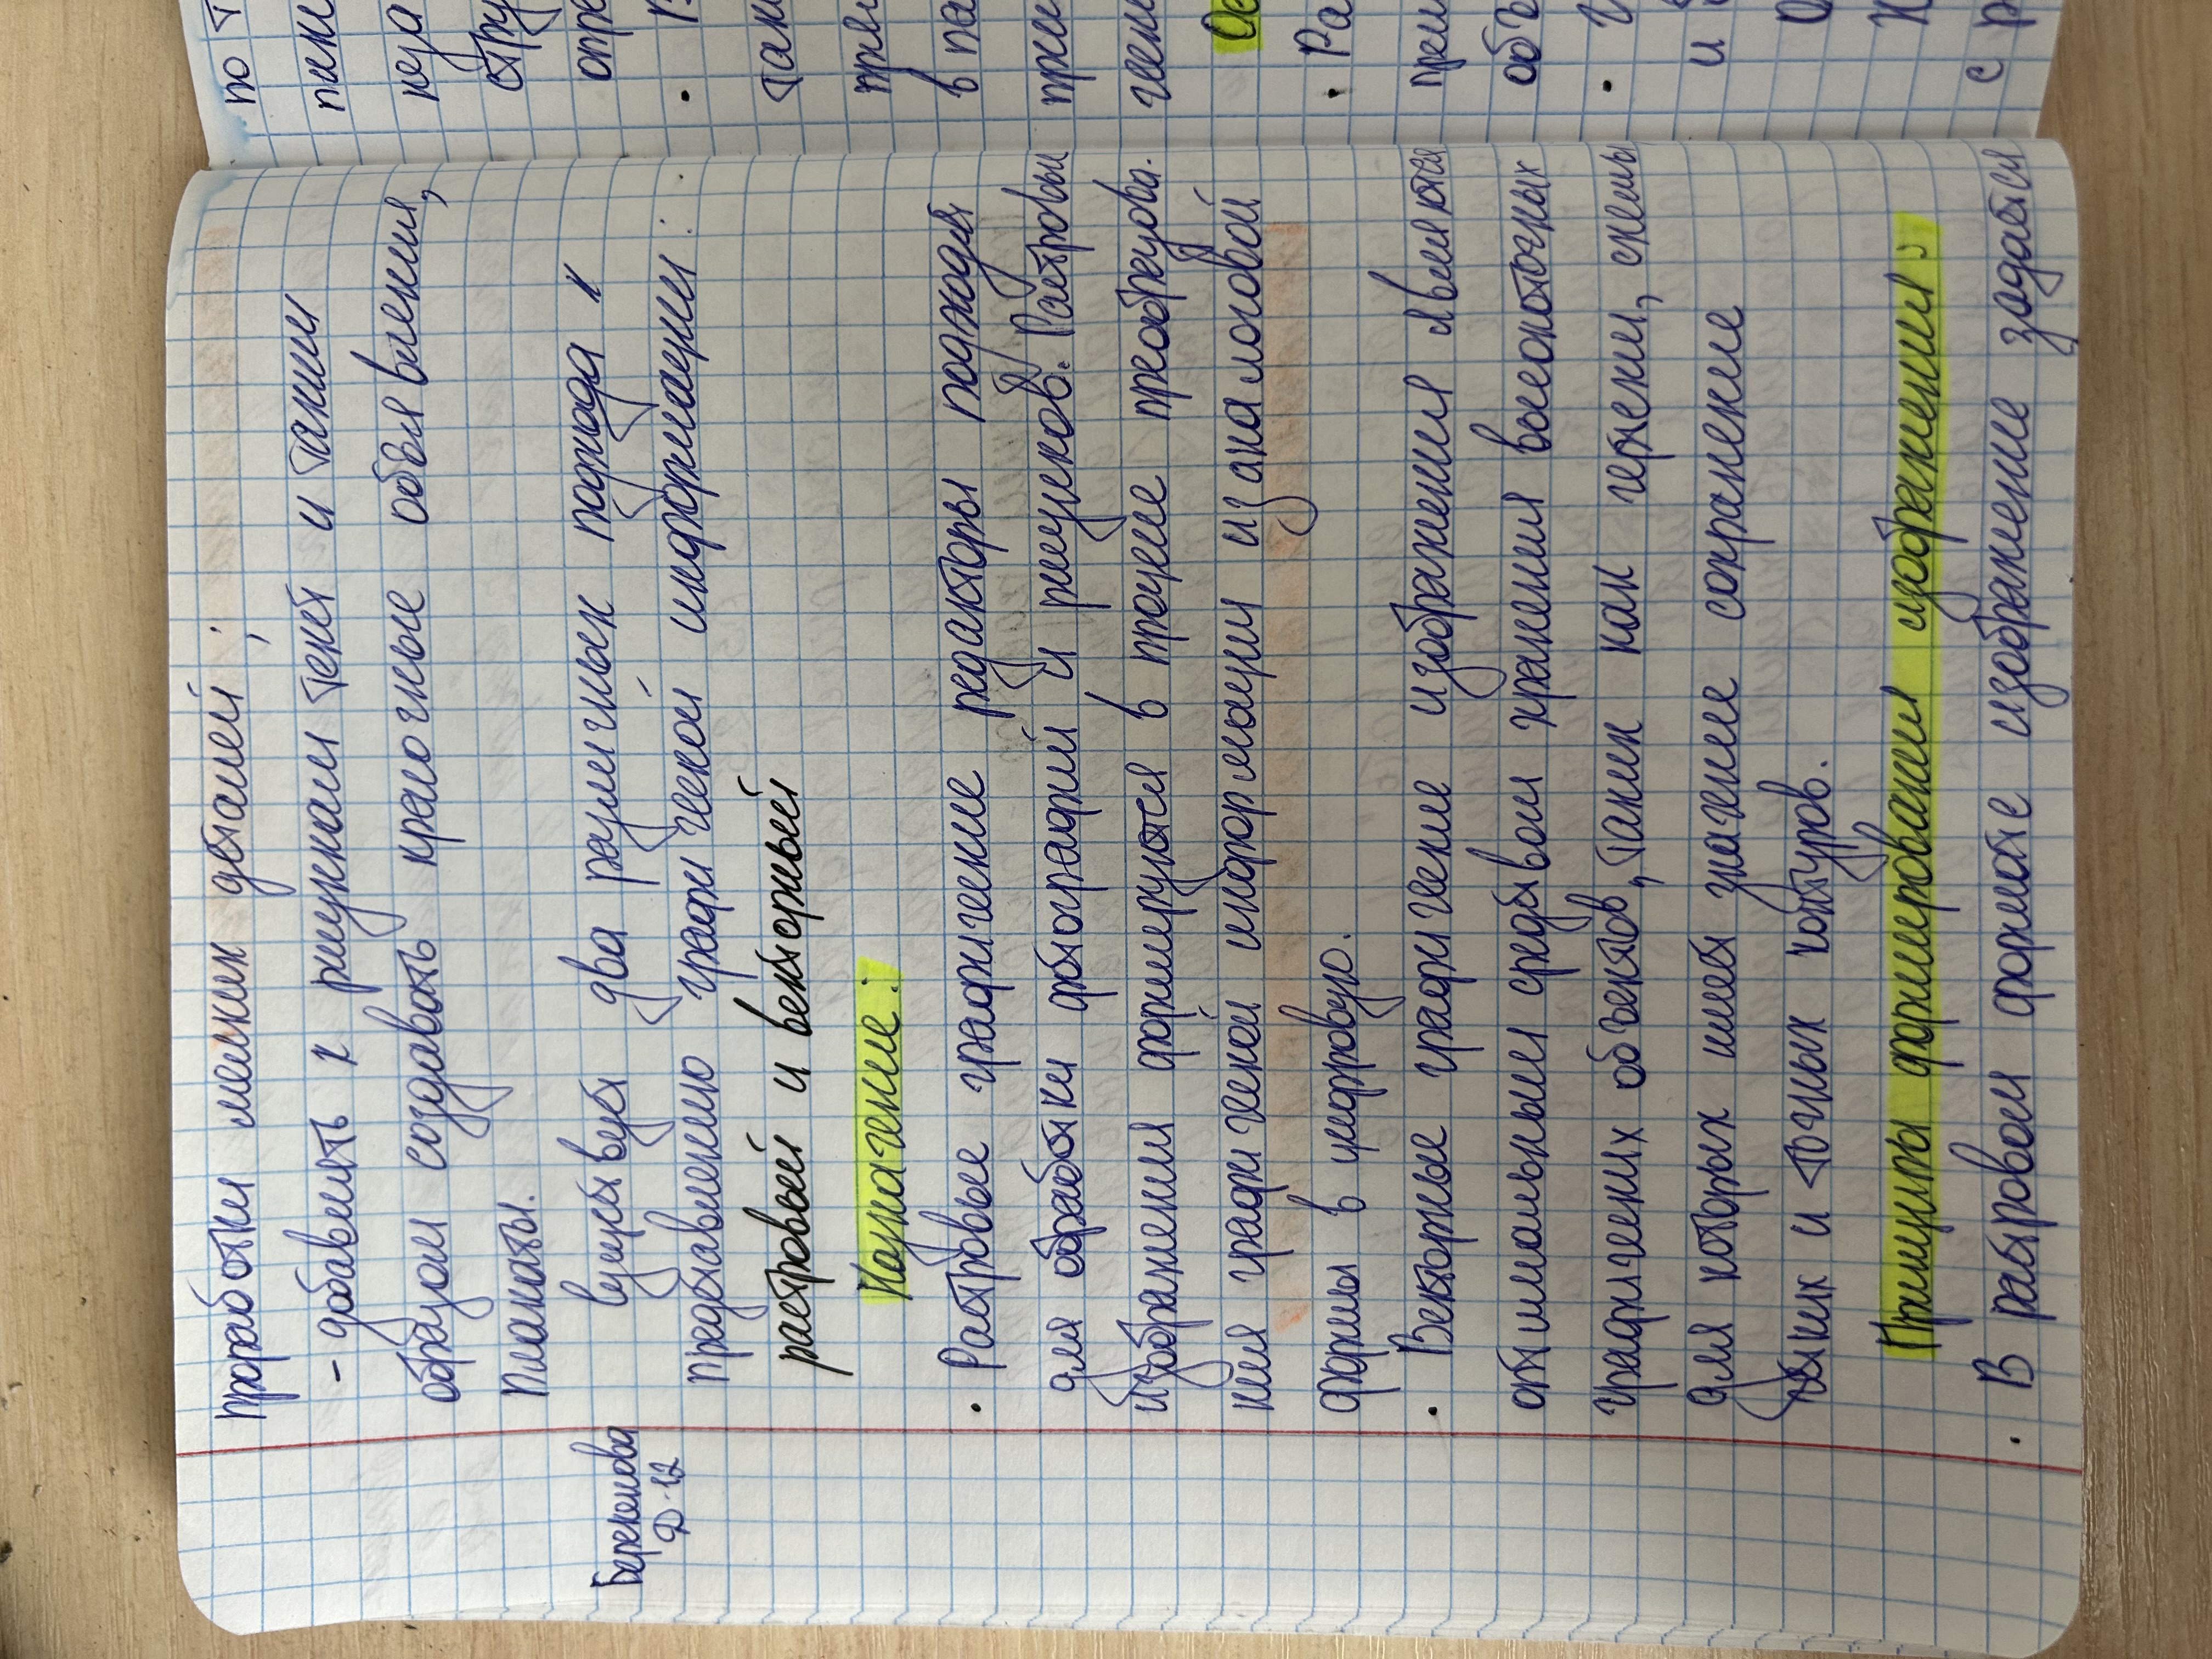 проработки мелких деталей;
- добавлять к рисункам текст и таким
образом создавать красочные объявления,
плакаты.
Беремова
Д-12
вуществует два различных подхода к
представлению графической информации:
растровый и векторный
Назначение:
• Растровые графические редакторы подходя
для обработки фотографий и рисунков. Растровы
изображения формируются в процессе преобразова.
ния графической информации из аналоговой
формы в цифровую.
• Векторные графические изображения являются
оптимальным средством хранения высокоточных
графических объектов, таких как чертежи, схемы
для которых имеет значение сохранение
четких и точных контуров.
Принципы формирования изображения:
• В растровом формате изображение задаётся
по т
стру
опре
в па
Ра
объ
и
с р